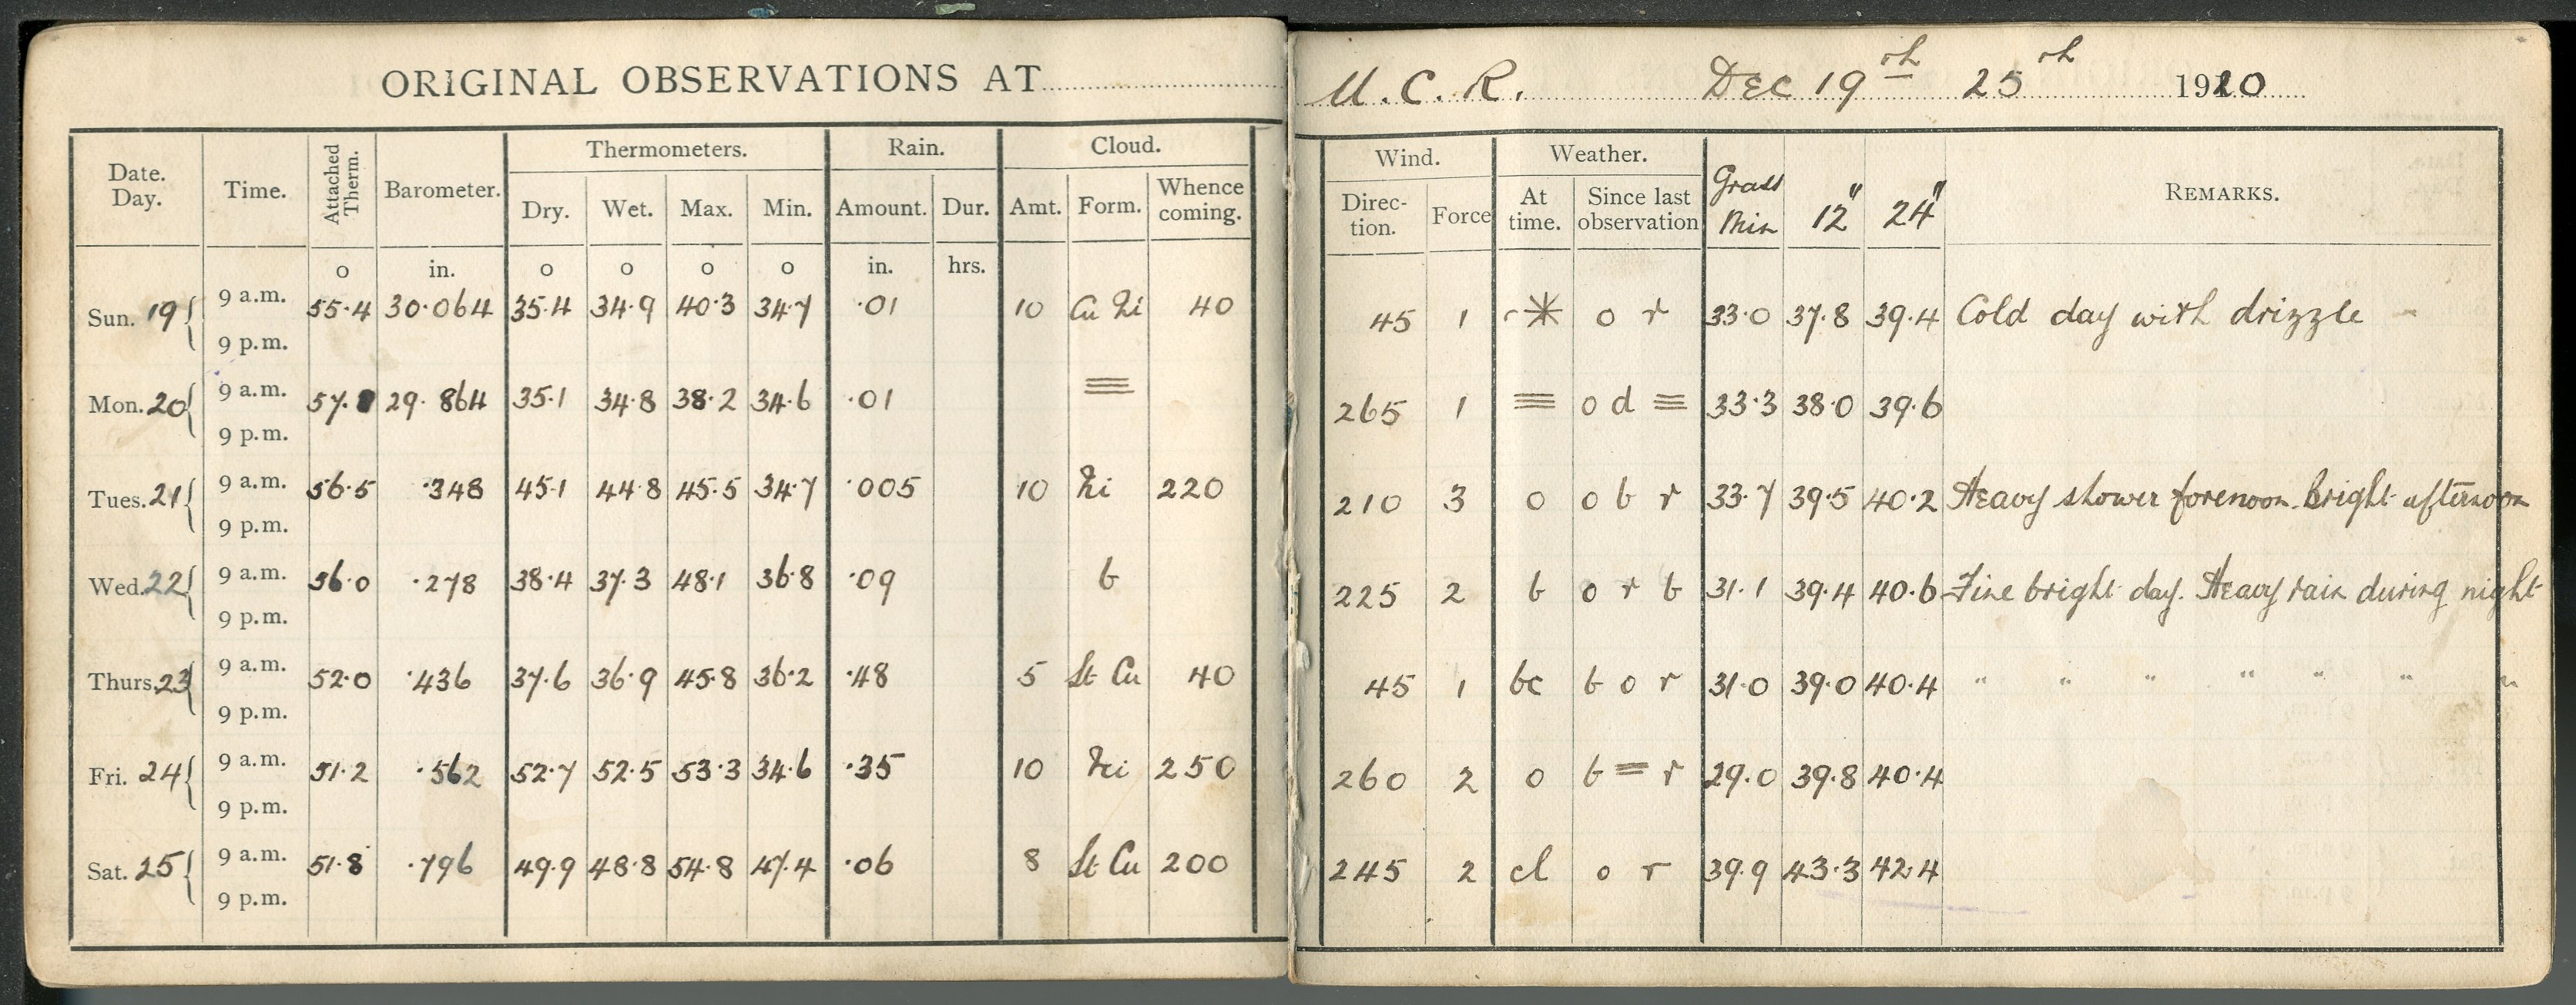 ORIGINAL OBSERVATIONS AT U.C.R. DEC 19th 25th 1920
Date. Day. Time. Attached Therm. Barometer. Thermometers. Rain. Cloud. Wind. Weather. Grass Min 12" 24" REMARKS.
Dry. Wet. Max. Min. Amount. Dur. Amt. Form. Whence coming. Direction. Force At time. Since last observation
o in. o o o o in. hrs.
Sun. 19 9 a.m. 55.4 30.064 35.4 34.9 40.3 34.7 .01 10 Cu Ni 40 45 1 r* o r 33.0 37.8 39.4 Cold day with drizzle
9 p.m.
Mon. 20 9 a.m. 57.8 29.864 35.1 34.8 38.2 34.6 .01 ≡ 265 1 ≡ o d ≡ 33.3 38.0 39.6
9 p.m.
Tues. 21 9 a.m. 56.5 .348 45.1 44.8 45.5 34.7 .005 10 Ni 220 210 3 o o b r 33.7 39.5 40.2 Heavy shower forenoon. Bright afternoon
9 p.m.
Wed. 22 9 a.m. 56.0 .278 38.4 37.3 48.1 36.8 .09 b 225 2 b o r b 31.1 39.4 40.6 Fine bright day. Heavy rain during night
9 p.m.
Thurs. 23 9 a.m. 52.0 .436 37.6 36.9 45.8 36.2 .48 5 St Cu 40 45 1 bc b o r 31.0 39.0 40.4 " " " " " " "
9 p.m.
Fri. 24 9 a.m. 51.2 .562 52.7 52.5 53.3 34.6 .35 10 Ni 250 260 2 o b = r 29.0 39.8 40.4
9 p.m.
Sat. 25 9 a.m. 51.8 .796 49.9 48.8 54.8 47.4 .06 8 St Cu 200 245 2 cl o r 39.9 43.3 42.4
9 p.m.